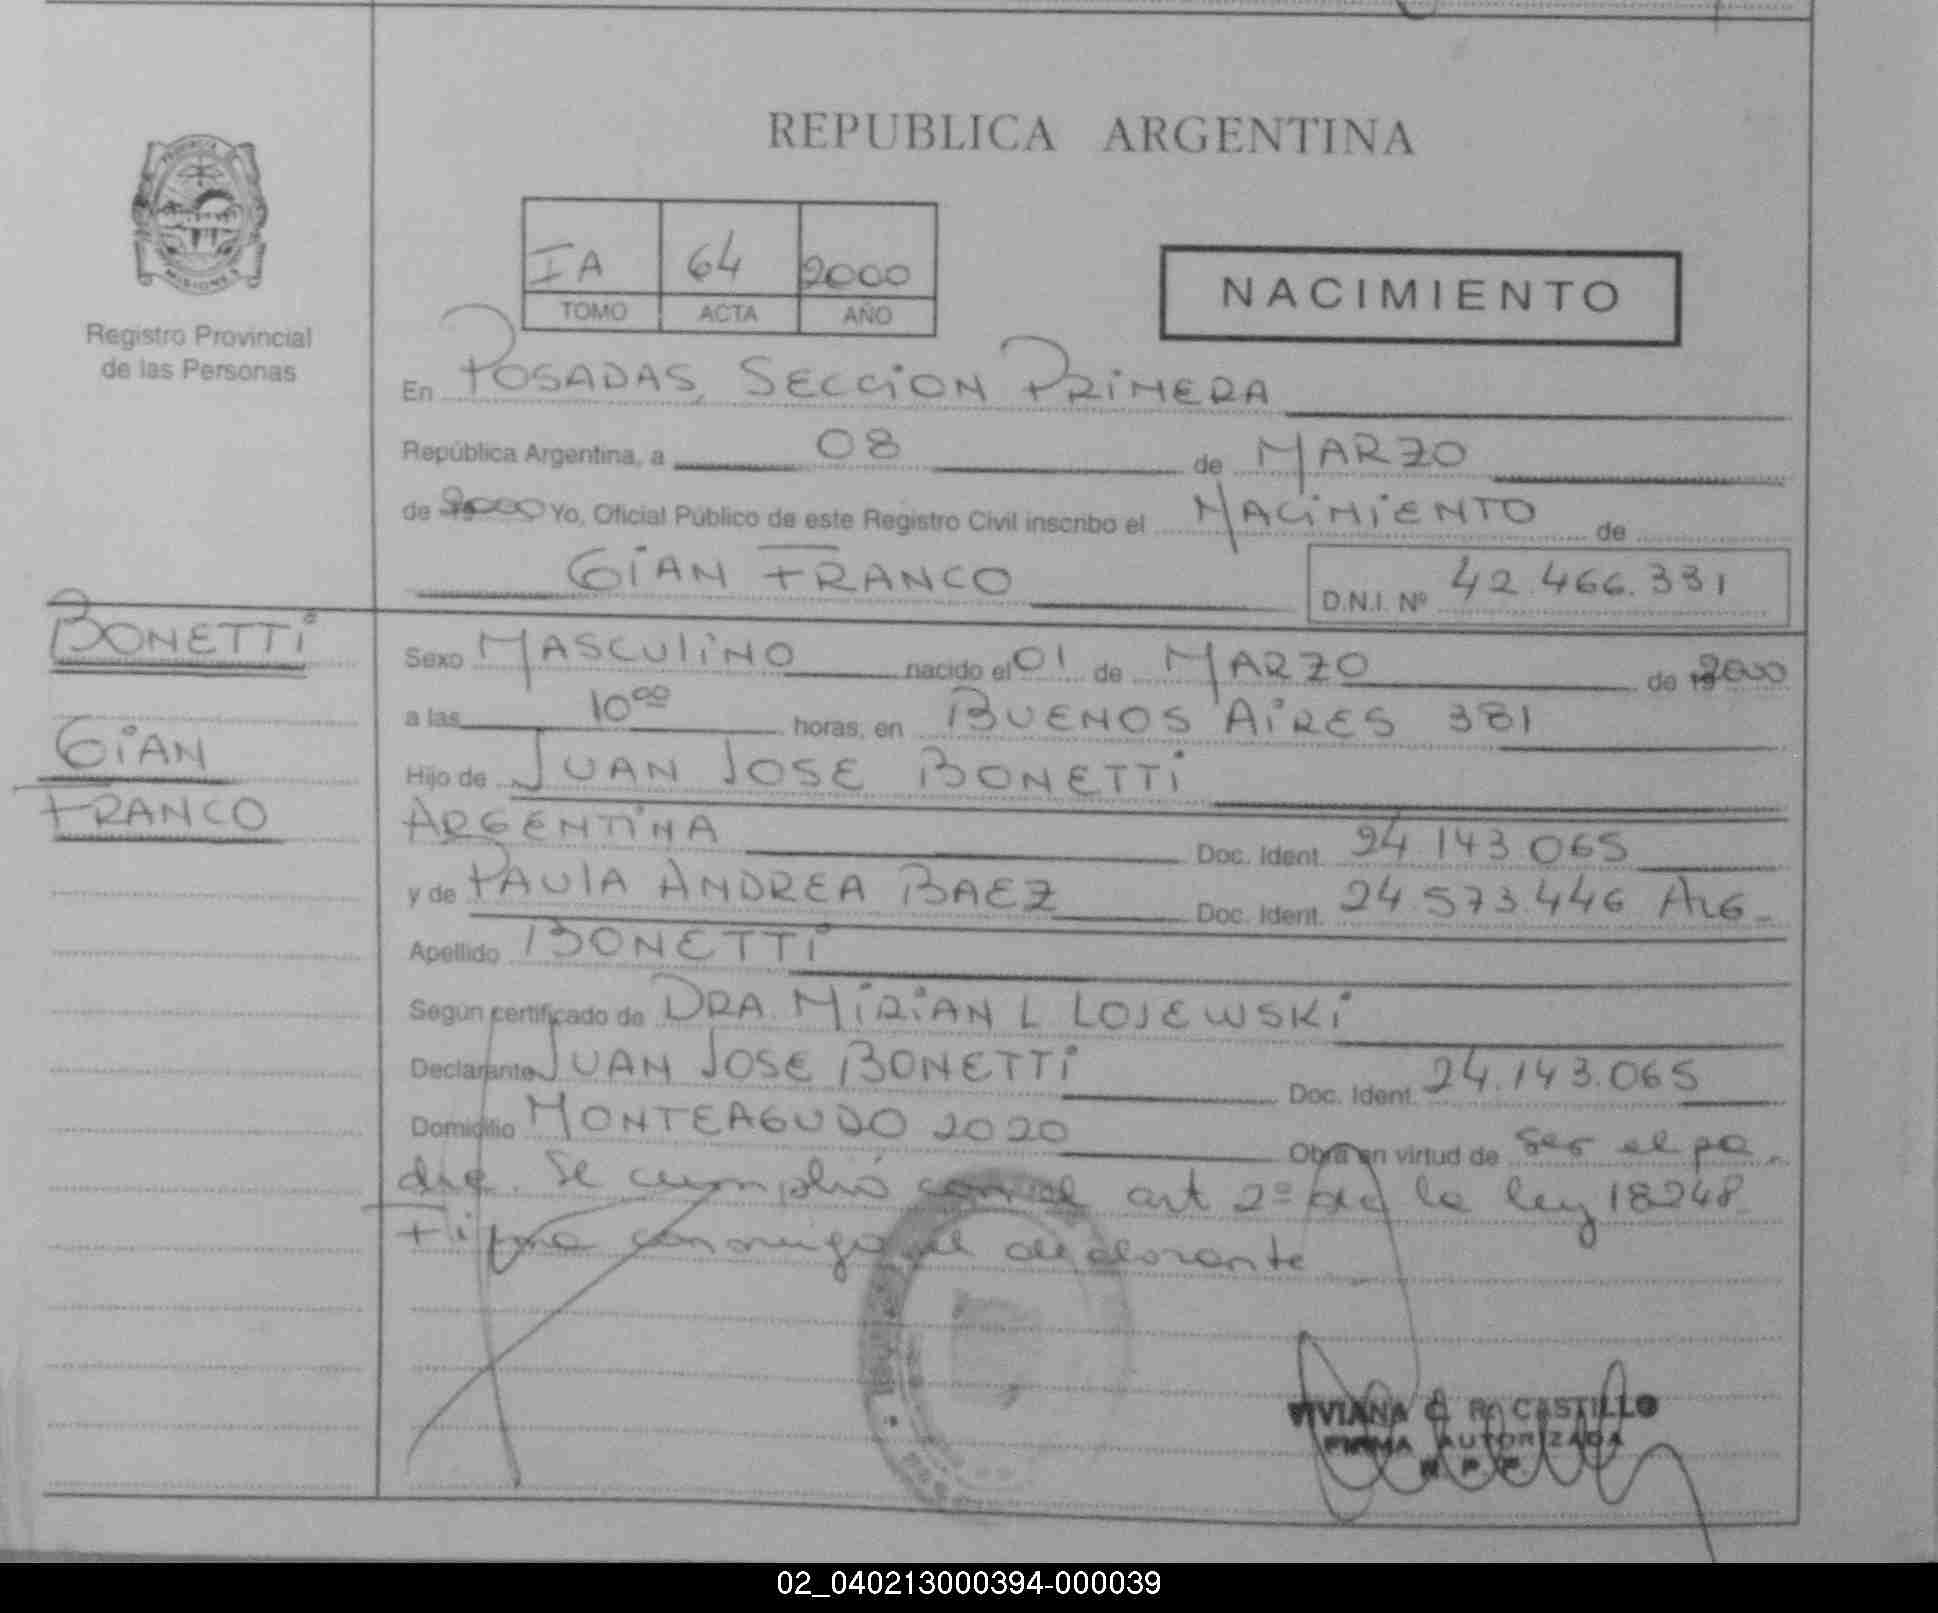 REPUBLICA ARGENTINA
PROVINCIA DE
MISIONES
Registro Provincial
de las Personas
IA 64 2000
TOMO ACTA AÑO
NACIMIENTO
En POSADAS, SECCION PRIMERA
República Argentina, a 08 de MARZO
de 2000 Yo, Oficial Público de este Registro Civil inscribo el NACIMIENTO de
GIAN FRANCO
D.N.I. Nº 42.466.331
BONETTI
GIAN
FRANCO
Sexo MASCULINO nacido el 01 de MARZO de 2000
a las 10⁰⁰ horas, en BUENOS AIRES 381
Hijo de JUAN JOSE BONETTI
ARGENTINA Doc. Ident. 24 143 065
y de PAULA ANDREA BAEZ Doc. Ident. 24.573.446 ARG.
Apellido BONETTI
Según certificado de DRA. MIRIAN L LOJEWSKI
Declarante JUAN JOSE BONETTI Doc. Ident. 24.143.065
Domicilio MONTEAGUDO 2020 Obra en virtud de ser el pa-
dre. Se cumplió con el art 2º de la ley 18248.
Firma conmigo el declarante
VIVIANA C. R. CASTILLO
FIRMA AUTORIZADA
R P P
02_040213000394-000039